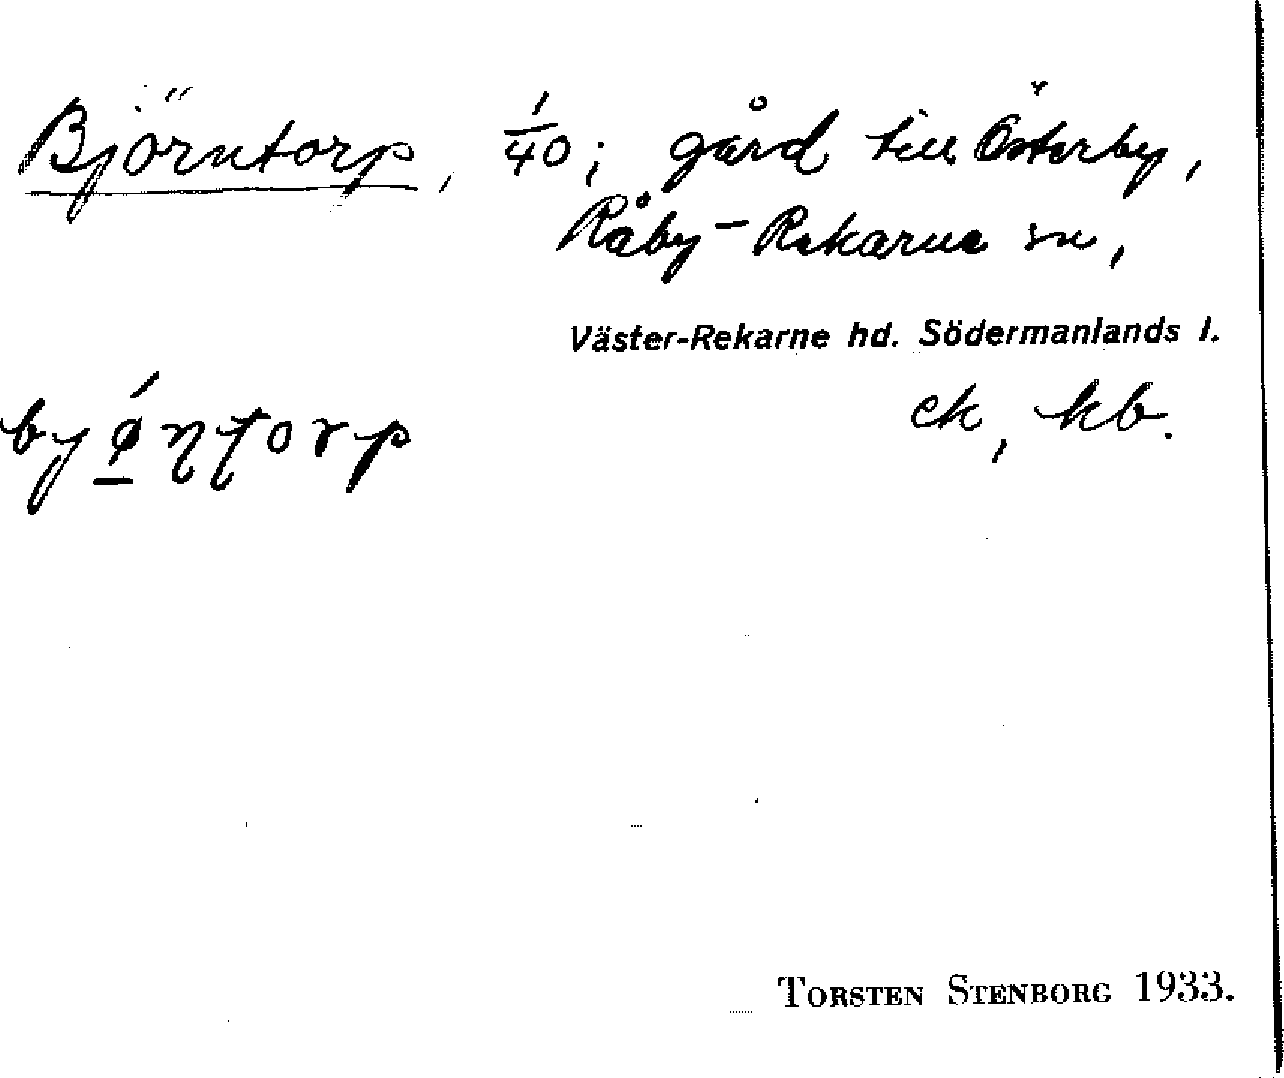 Björntorp, 1/40; gård till Österby,
Råby-Rekarne sn,
Väster-Rekarne hd. Södermanlands l.
ek, kb.
TORSTEN STENBORG 1933.